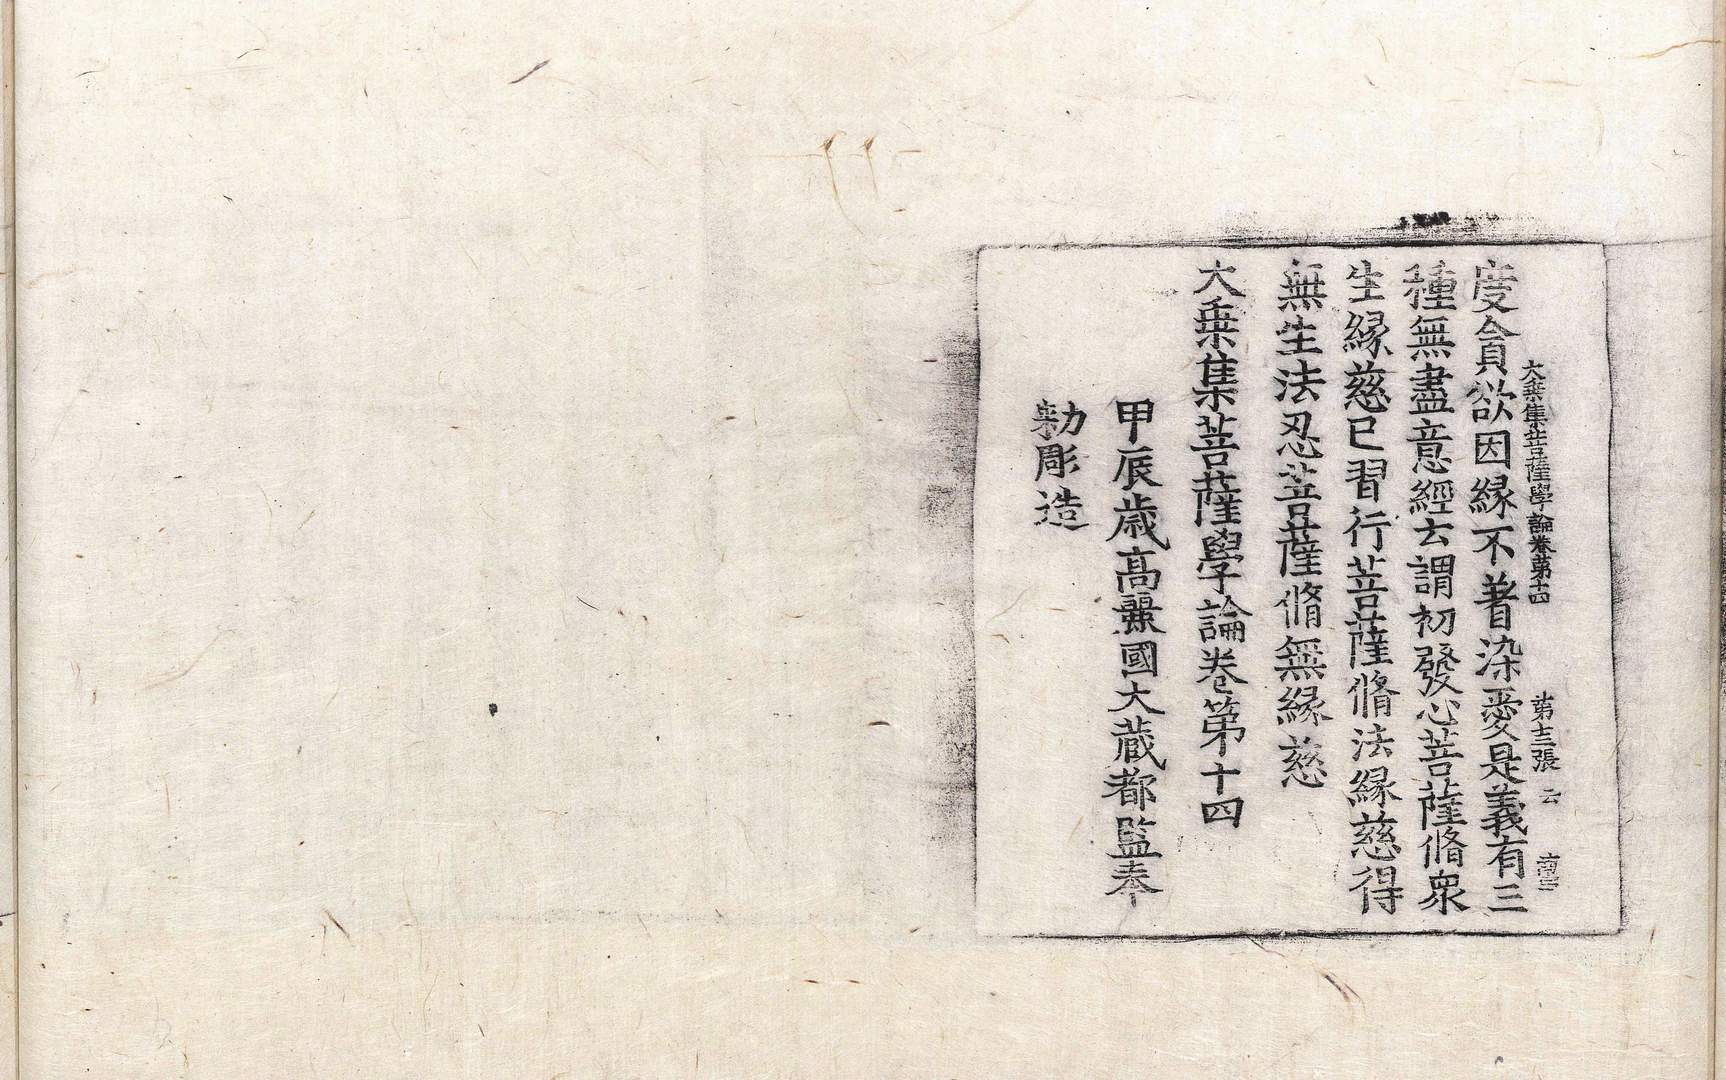 大乗集菩薩學論卷第十四 第十三張 云
度貪欲因縁不著染愛是義有三
種無盡意經云謂初發心菩薩脩衆
生縁慈已習行菩薩脩法縁慈得
無生法忍菩薩脩無縁慈
大乗集菩薩學論卷第十四
甲辰歲高麗國大藏都監奉
勑彫造